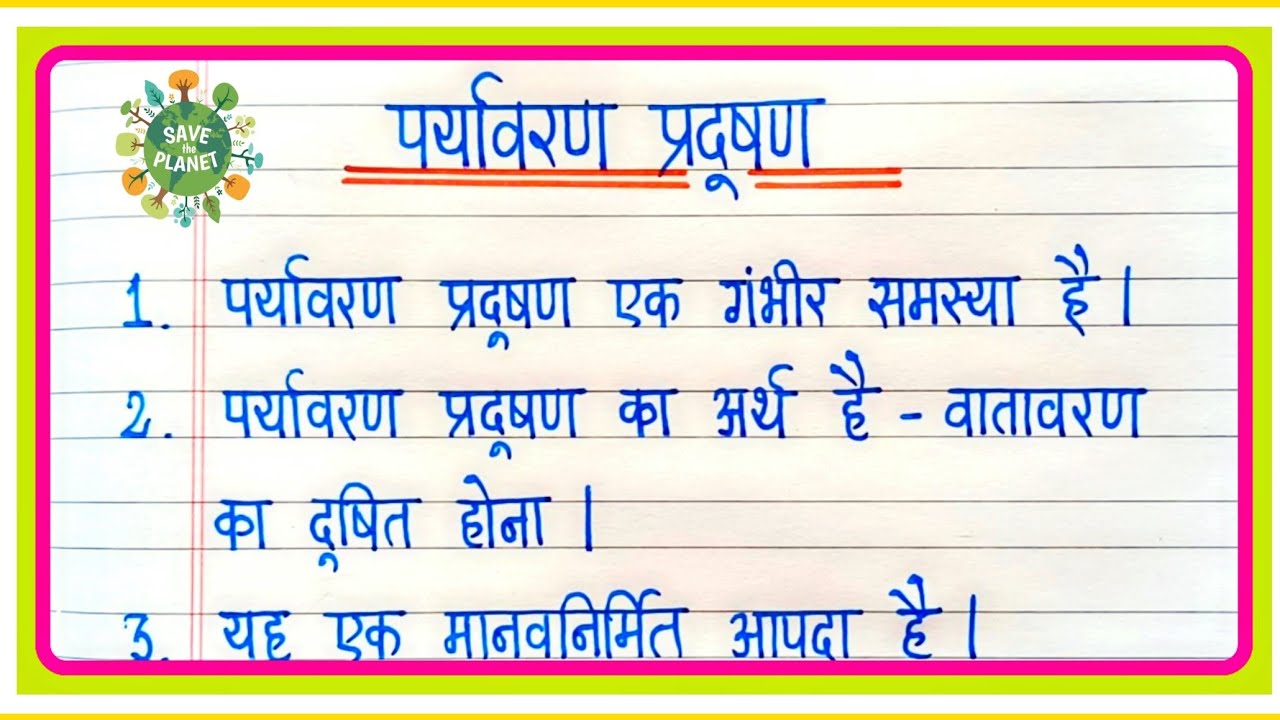 SAVE
the
PLANET
पर्यावरण प्रदूषण
1. पर्यावरण प्रदूषण एक गंभीर समस्या है।
2. पर्यावरण प्रदूषण का अर्थ है - वातावरण
का दूषित होना।
3. यह एक मानवनिर्मित आपदा है।